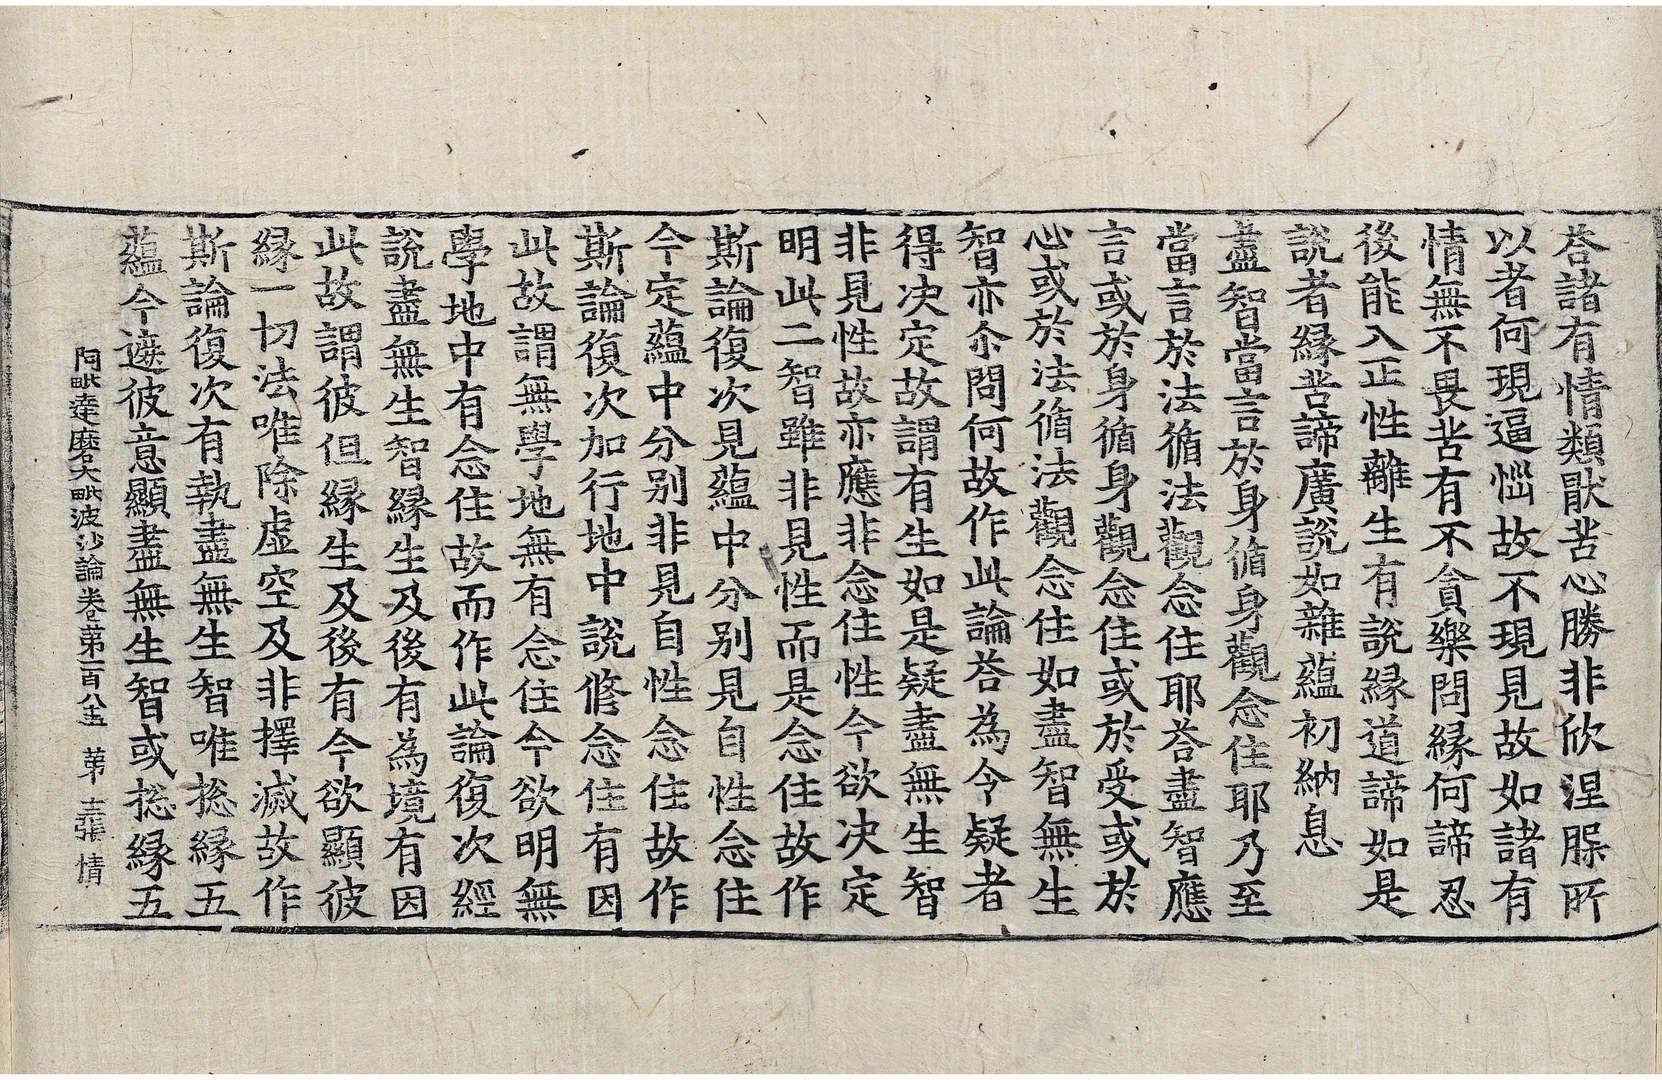 荅諸有情類猒苦心勝非欣涅脲所
以者何現逼惱故不現見故如諸有
情無不畏苦有不貪樂問緣何諦忍
後能入正性離生有說緣道諦如是
說者緣苦諦廣說如雜蘊初納息
盡智當言於身循身觀念住耶乃至
當言於法循法觀念住耶荅盡智應
言或於身循身觀念住或於受或於
心或於法循法觀念住如盡智無生
智亦尒問何故作此論荅為令疑者
得決定故謂有生如是疑盡無生智
非見性故亦應非念住性今欲決定
明此二智雖非見性而是念住故作
斯論復次見蘊中分別見自性念住
今定蘊中分別非見自性念住故作
斯論復次加行地中說修念住有因
此故謂無學地無有念住今欲明無
學地中有念住故而作此論復次經
說盡無生智緣生及後有為境有因
此故謂彼但緣生及後有今欲顯彼
緣一切法唯除虛空及非擇滅故作
斯論復次有執盡無生智唯捴緣五
蘊今遮彼意顯盡無生智或捴緣五
阿毗達磨大毗波沙論卷第一百八十五　第十二張　情